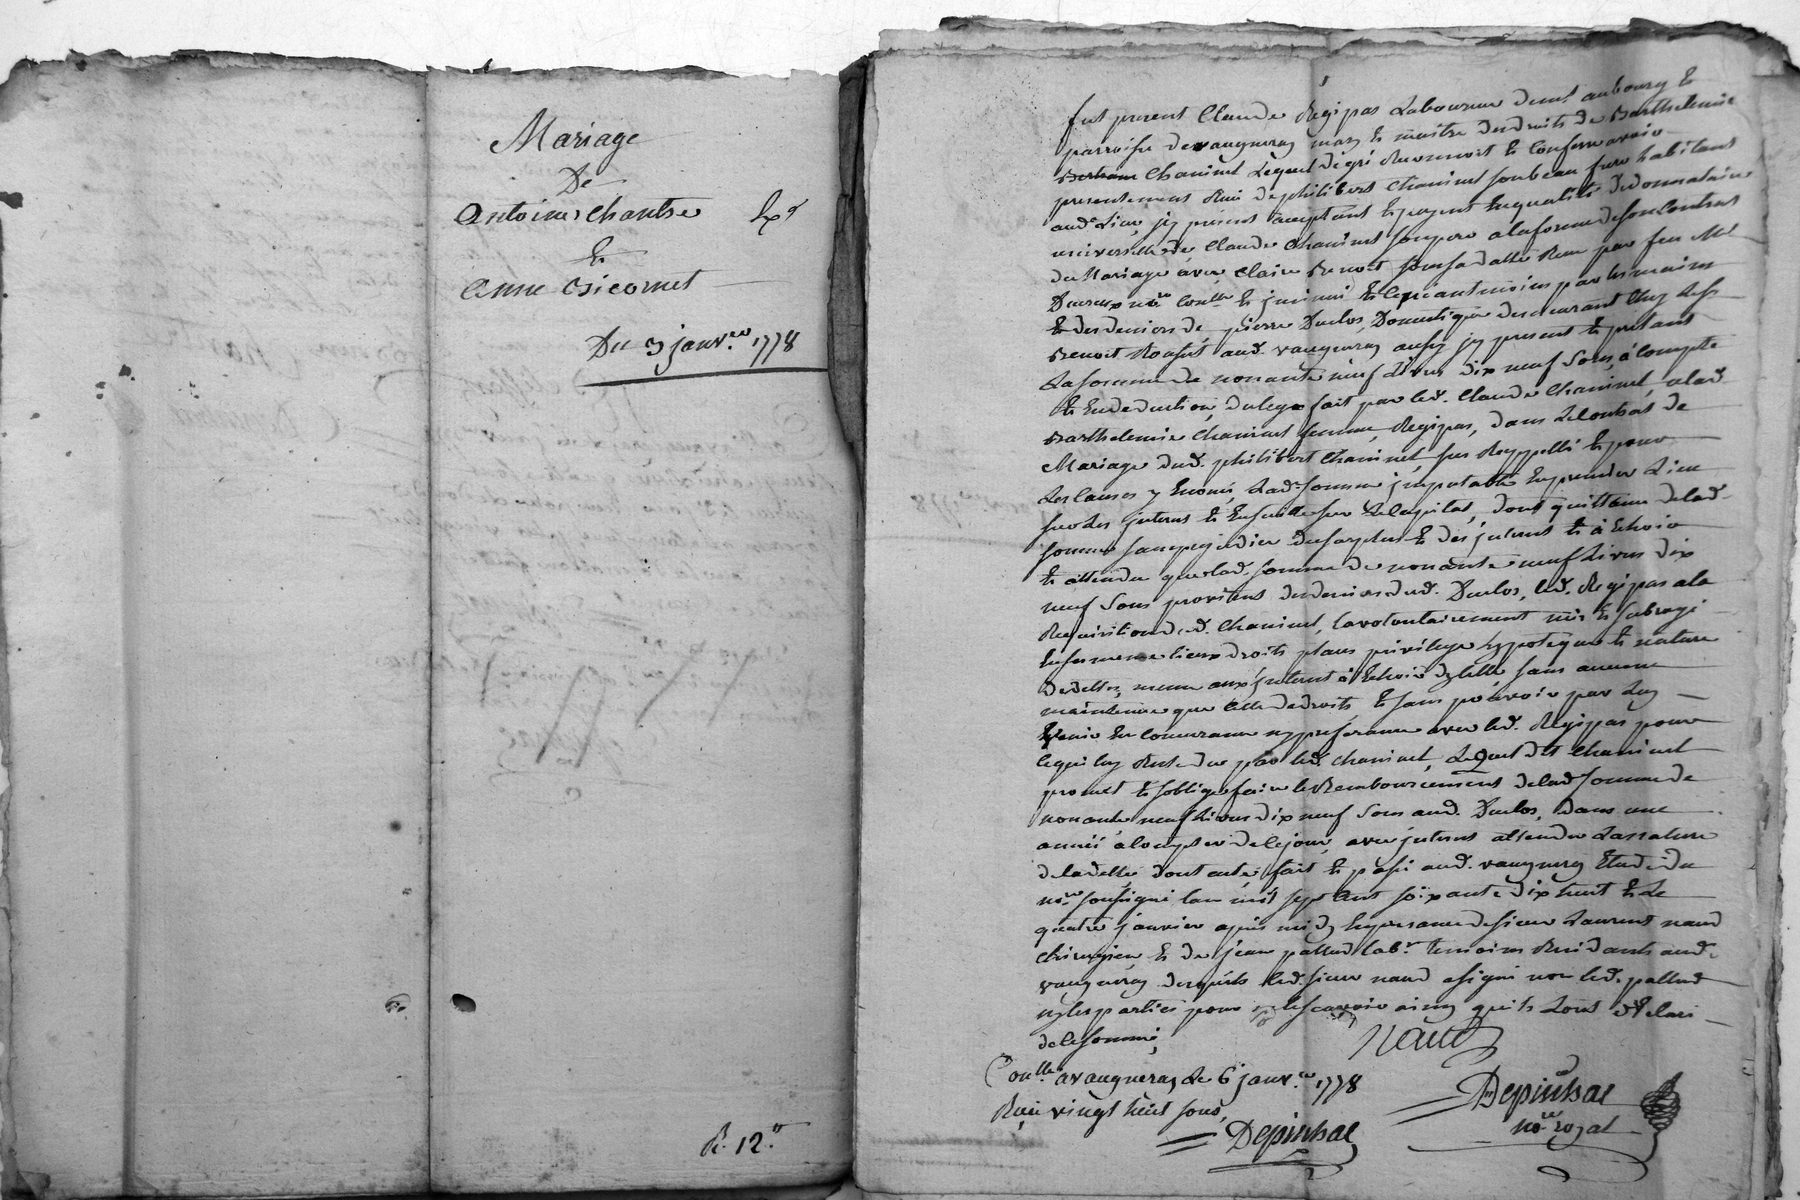 Mariage
De
Antoine Chantre
Et
Anne
Du 3 janv.er 1778
R. 12
fut present Claude Régipas Laboureur dem.t aubourg Et
parroisse devaugneray mary Et maitre desdroits de Barthelemie
Chaninel Lequel degré Reconnoit Et Confesse avoir
presentement Reçu dephilibert Chaninel son beau frere habitant
aud. Lieu, jcy présent acceptant Et payant Enqualité dedonnataire
universelle de Claude Chaninel son pere alaforme deson Contrat
de Mariage avec Claire Benoit Sous sa datte Reçu par feu Me
no.re Con.lle Et jnsinué Et cepaiant moins par les mains
Et des deniers de pierre Duclos, Domestique demeurant chez Le Sr
Benoit aud. vaugneray aussy jcy present Et prétant
La somme de nonante neuf Livres dix neuf Sous, à Compte
Et En deduction, du legs fait par led. Claude Chaninel, alad.
Barthelemie Chaninel femme, Régipas, dans Le Contrat de
Mariage dud. philibert Chaninel, sus Rappellé Et pour
Les Causes y Enoncé, Lad. somme jmputable Enpremier Lieu
sur Les jnterets Et Ensuitte sur Le Capital, dont quittance delad.
somme sans prejudice dusurplus Et des jnterets Et à Echoir
Et attendu que lad. somme de nonante neuf Livres dix
neuf Sous provient des deniers dud. Duclos, led. Régipas ala
Requisition dud. Chaninel, la volontairement mis Et subrogé
En ses memes lieux droits places privilege hypoteque Et nature
dedettes, meme aux jnterets à Echoir dycelle sans aucune
maintenue que Celle dedroits Et sans pouvoir par Luy
Venir En Concurance ny preferance avec led. Régipas pour
Cequi luy Reste du par led. Chaninel, Lequel dit Chaninel
promet Et soblige faire le Remboursement delad. somme de
nonante neuf Livres dix neuf Sous aud. Duclos, dans une
année, à Compter de Cejour, avec jnterets attendu La nature
de la dette dont acte, fait Et passé aud. vaugneray Etude du
no.re soussigné lan mil sept Cent soixante dix huit Et Le
quatre janvier après midy Enpresance de sieur Laurent naud
Chirurgien Et de jean pallud lab.r temoins Residants aud.
vaugneray desquels led. sieur naud asigné non led. pallud
ny les parties pour ne le scavoir ainsy quils Lont déclaré
de Ce Sommé,
Naud
Con.llé avaugneray Le 6 janv.er 1778
Reçu vingt huit sous,
Depinhac
Depinhac
no.re royal